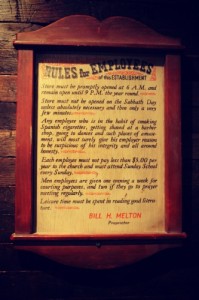 RULES for EMPLOYEES
of this ESTABLISHMENT
Store must be promptly opened at 6 A.M. and
remain open until 9 P.M. the year round.
Store must not be opened on the Sabbath Day
unless absolutely necessary and then only a very
few minutes.
Any employee who is in the habit of smoking
Spanish cigarettes, getting shaved at a barber
shop, going to dances and such places of amuse-
ment, will most surely give his employer reason
to be suspicious of his integrity and all around
honesty.
Each employee must not pay less than $5.00 per
year to the church and must attend Sunday School
every Sunday.
Men employees are given one evening a week for
courting purposes, and two if they go to prayer
meeting regularly.
Leisure time must be spent in reading good litera-
ture.
BILL H. MELTON
Proprietor